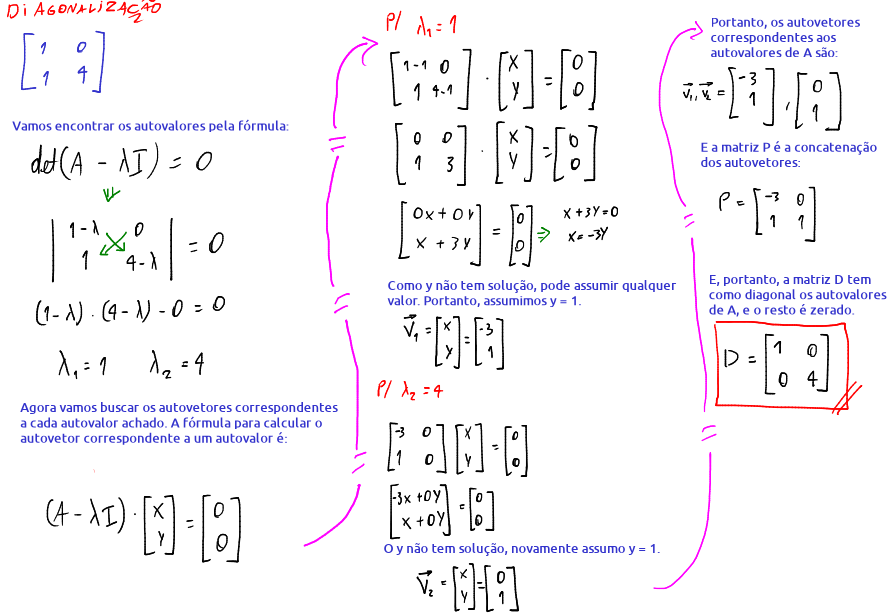 DIAGONALIZAÇÃO
[1 0]
[1 4]
Vamos encontrar os autovalores pela fórmula:
det(A - λI) = 0
|1-λ 0|
|1 4-λ| = 0
(1-λ) · (4-λ) - 0 = 0
λ₁ = 1 λ₂ = 4
Agora vamos buscar os autovetores correspondentes
a cada autovalor achado. A fórmula para calcular o
autovetor correspondente a um autovalor é:
(A - λI) · [x y] = [0 0]
P/ λ₁ = 1
[1-1 0] · [x] = [0]
[1 4-1] [y] [0]
[0 0] · [x] = [0]
[1 3] [y] [0]
[0x + 0y] = [0] ⇒ x + 3y = 0
[x + 3y] [0] x = -3y
Como y não tem solução, pode assumir qualquer
valor. Portanto, assumimos y = 1.
v₁ = [x] = [-3]
[y] [1]
P/ λ₂ = 4
[-3 0] [x] = [0]
[1 0] [y] [0]
[-3x + 0y] = [0]
[x + 0y] [0]
O y não tem solução, novamente assumo y = 1.
v₂ = [x] = [0]
[y] [1]
Portanto, os autovetores
correspondentes aos
autovalores de A são:
v₁, v₂ = [-3] , [0]
[1] [1]
E a matriz P é a concatenação
dos autovetores:
P = [-3 0]
[1 1]
E, portanto, a matriz D tem
como diagonal os autovalores
de A, e o resto é zerado.
D = [1 0]
[0 4]